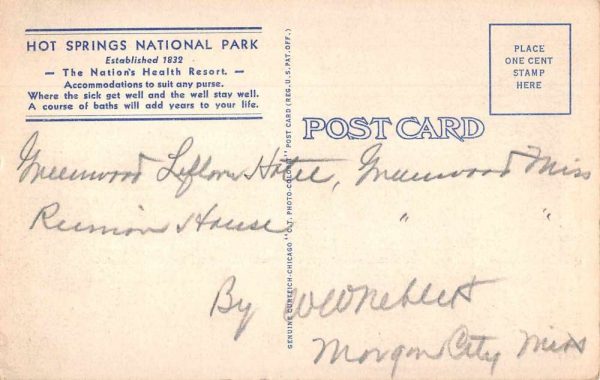 HOT SPRINGS NATIONAL PARK
Established 1832
— The Nation's Health Resort. —
Accommodations to suit any purse.
Where the sick get well and the well stay well.
A course of baths will add years to your life.
PLACE
ONE CENT
STAMP
HERE
POST CARD
GENUINE CURTEICH-CHICAGO "C.T. PHOTO-COLORIT" POST CARD (REG. U.S. PAT. OFF.)
Greenwood Leflore Hotel, Greenwood Miss
Reunion House " "
By
Morgan City Miss